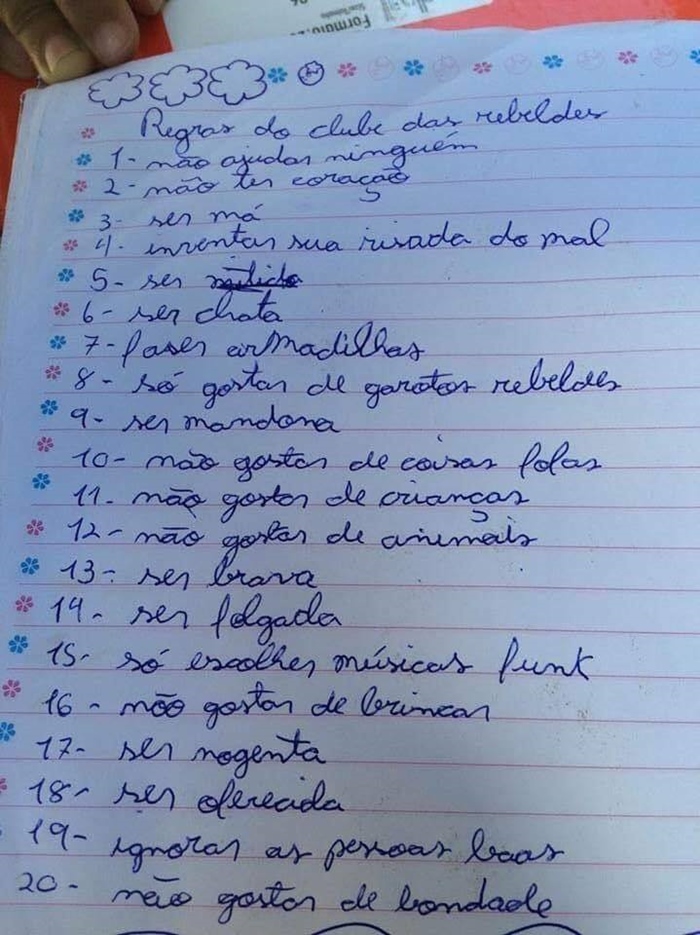 Formato:
Regras do clube das rebeldes
1- não ajudar ninguém
2- não ter coração
3- ser má
4- inventar sua risada do mal
5- ser
6- ser chata
7- faser armadilhas
8- só gostar de garotos rebeldes
9- ser mandona
10- não gostar de coisas fofas
11- não gostar de crianças
12- não gostar de animais
13- ser brava
14- ser folgada
15- só escolher músicas funk
16- não gostar de brincar
17- ser nogenta
18- ser oferecida
19- ignorar as pessoas boas
20- não gostar de bondade